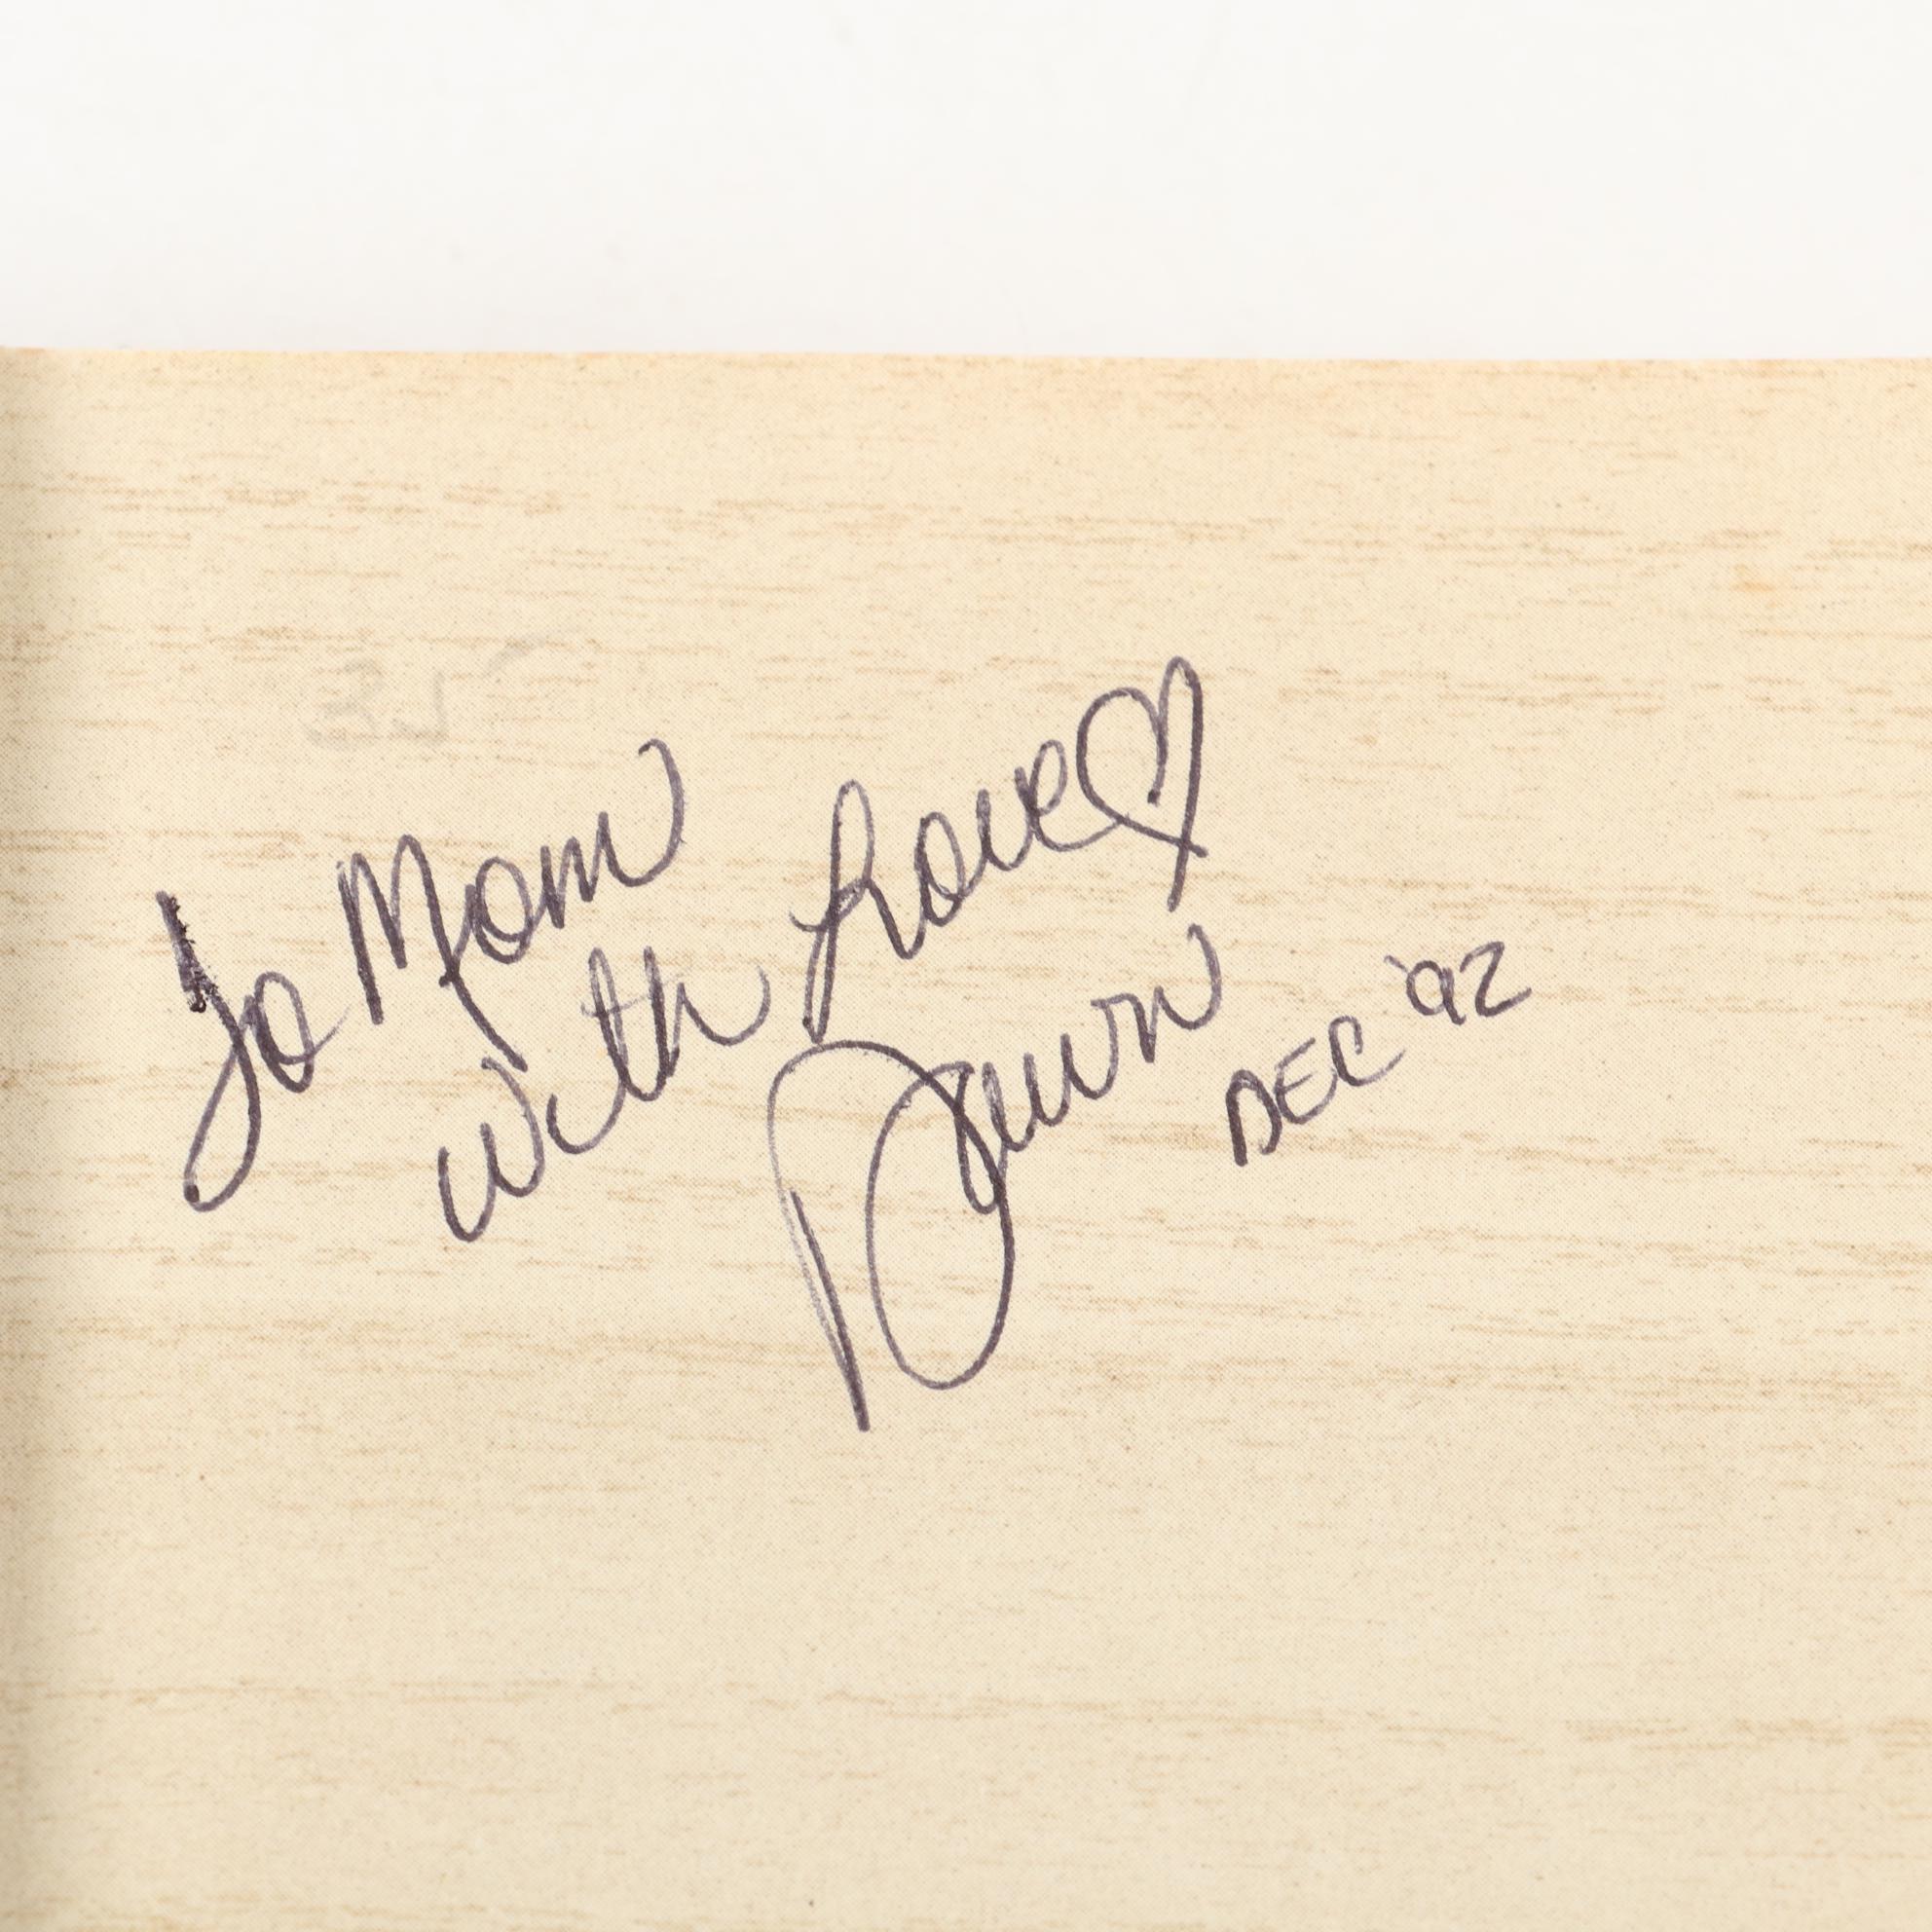 To Mom
with Love♡
Dawn
DEC '92